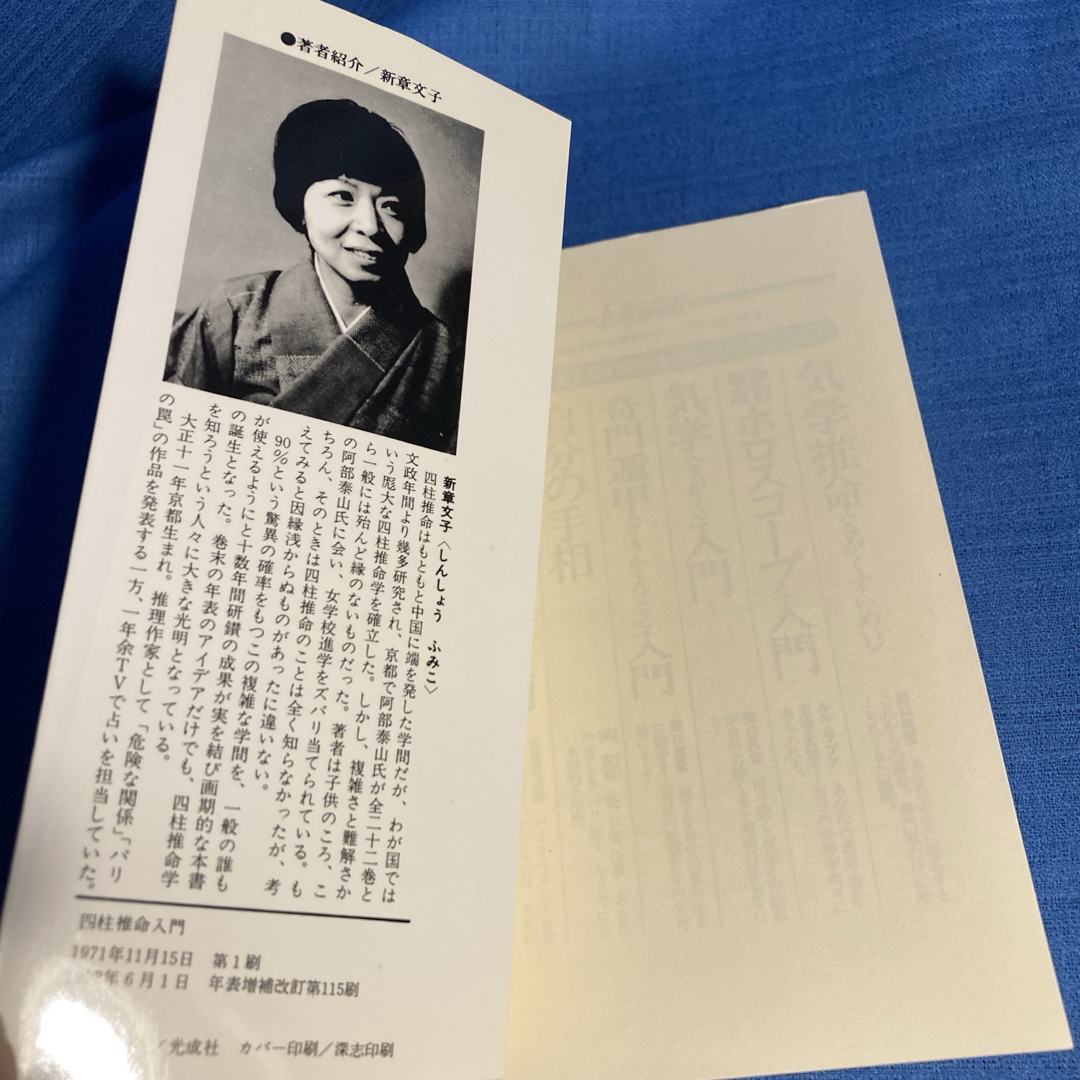 ●著者紹介／新章文子
新章文子〈しんしょう　ふみこ〉
四柱推命はもともと中国に端を発した学問だが、わが国では
文政年間より幾多研究され、京都で阿部泰山氏が全二十二巻と
いう厖大な四柱推命学を確立した。しかし、複雑さと難解さか
ら一般には殆んど縁のないものだった。著者は子供のころ、こ
の阿部泰山氏に会い、女学校進学をズバリ当てられている。も
ちろん、そのときは四柱推命のことは全く知らなかったが、考
えてみると因縁浅からぬものがあったに違いない。
90％という驚異の確率をもつこの複雑な学問を、一般の誰も
が使えるようにと十数年間研鑚の成果が実を結び画期的な本書
の誕生となった。巻末の年表のアイデアだけでも、四柱推命学
を知ろうという人々に大きな光明となっている。
大正十一年京都生まれ。推理作家として「危険な関係」「バリ
の罠」の作品を発表する一方、一年余TVで占いを担当していた。
四柱推命入門
1971年11月15日　第1刷
年6月1日　年表増補改訂第115刷
／光成社　カバー印刷／深志印刷